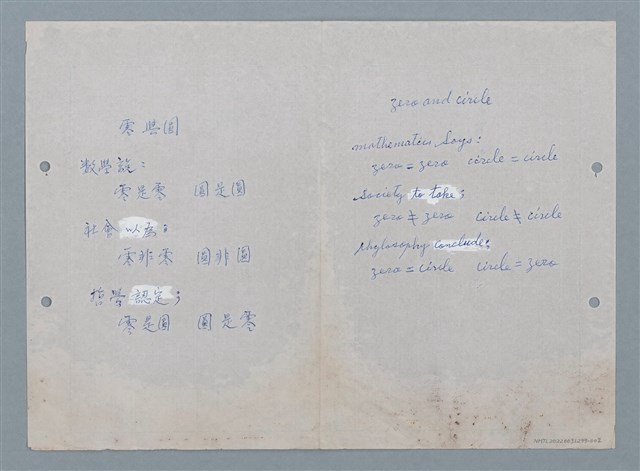 零與圓
數學說：
零是零 圓是圓
社會以為：
零非零 圓非圓
哲學認定：
零是圓 圓是零
zero and circle
mathematics Says:
zero = zero circle = circle
Society to take:
zero ≠ zero circle ≠ circle
phylosophy conclude:
zero = circle circle = zero